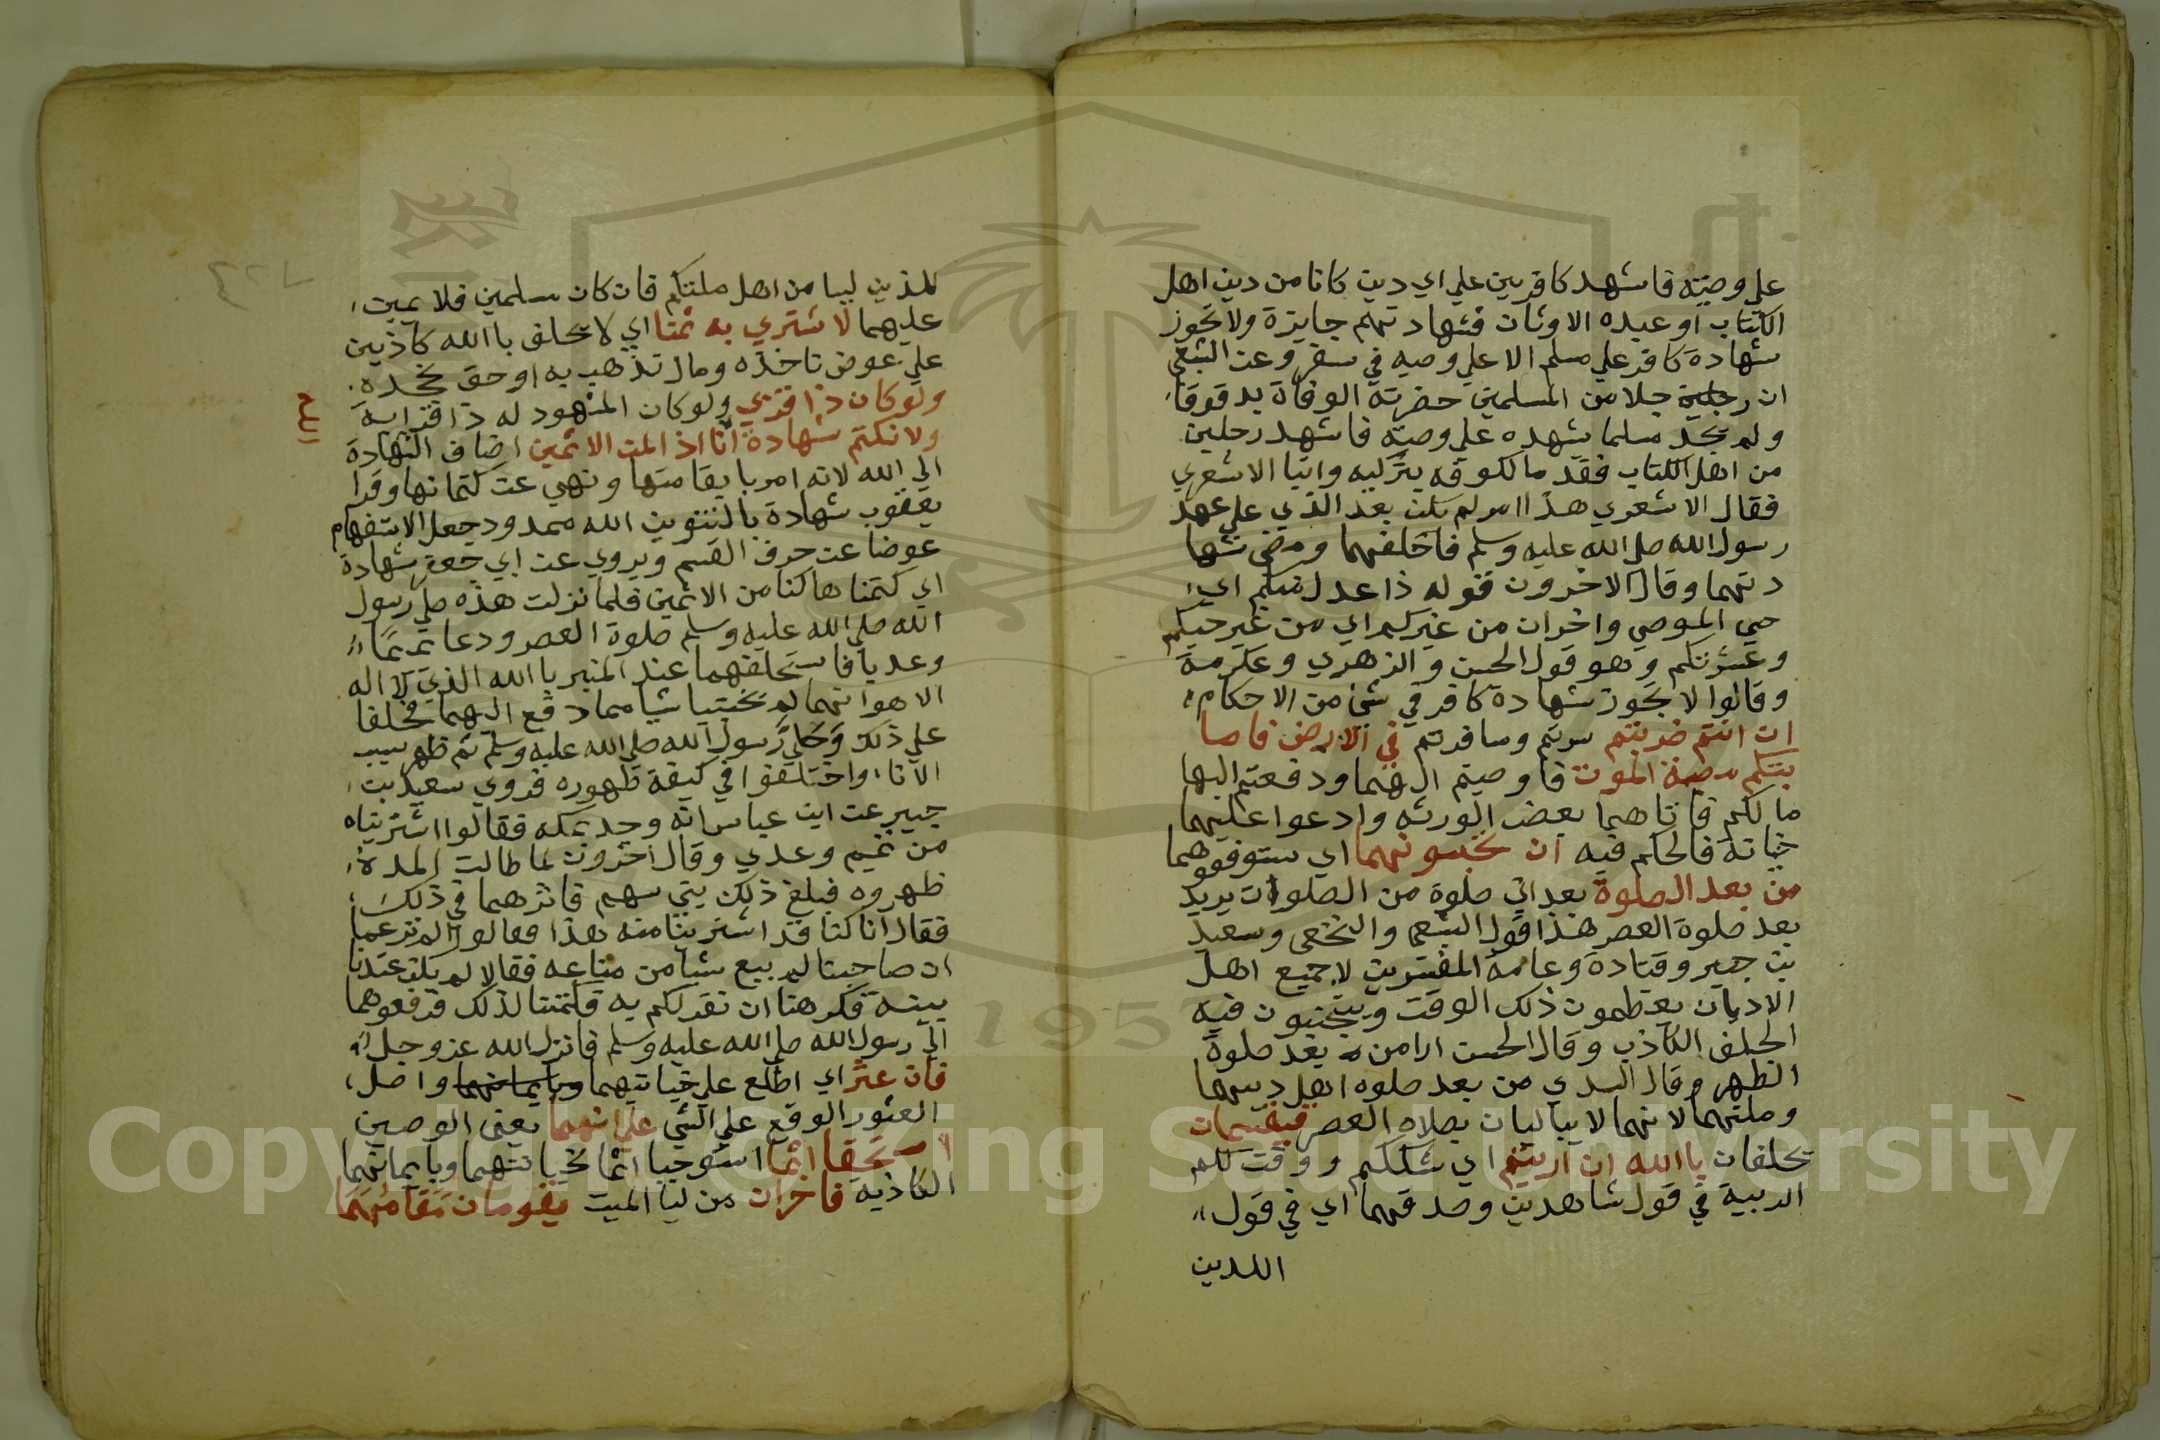 علي وصيته فاشهد كافرين علي اي دين كانا من دين اهل
الكتاب او عبده الاوثان فشهاد تهم جايزة ولا تجوز
شهادة كافر علي مسلم الا علي وصيه في سفر وعن الشعبي
ان رجلا من المسلمين حضرته الوفاة بدقوقا
ولم يجد مسلما يشهده علي وصيته فاشهد رجلين
من اهل الكتاب فقدما لكوفه بتركته واتيا الاشعري
فقال الاشعري هذا امر لم يكن بعد الذي علي عهد
رسول الله صلي الله عليه وسلم فاحلفهما ومضي شها
دتهما وقال الاخرون قوله ذا عدل منكم اي
حي الموصي واخران من غيركم اي من غير حيكم
وعشرتكم وهو قول الحسن والزهري وعكرمة
وقالوا لا تجوز شهادة كافر في شئ من الاحكام
ان انتم ضربتم سرتم وسافرتم في الارض فاصا
بتكم مصيبة الموت فاوصيتم اليهما ودفعتم اليها
مالكم فاتاهما بعض الورثه وادعوا عليهما
خيانة فالحكم فيه ان تحبسونهما اي ستوفقوهما
من بعد الصلوة بعد اي صلوة من الصلوات يريد
بعد صلوة العصر هذا قول الشعبي والنخعي وسعيد
بن جبير وقتادة وعامة المفسرين لا جميع اهل
الاديان يعظمون ذلك الوقت ويجتنبون فيه
الحلف الكاذب وقال الحسن ارا من بعد صلوة
الظهر وقال السدي من بعد صلوه اهل دينهما
وملتهما لانهما لا يباليان بصلاه العصر فيقسمان
يحلفان باالله ان ارتبتم اي شككتم ووقت لكم
الريبة في قول شاهدين وصدقهما اي في قول
اللدين
للذين ليسا من اهل ملتكم فان كان مسلمين فلا يمين
عليهما لا نشتري به ثمنا اي لا نحلف باالله كاذبين
علي عوض ناخذه ومال نذهب به او حق نجحده
ولو كان ذا قربي ولو كان المشهود له ذا قرابة
ولا نكتم شهادة انا اذا لمن الاثمين اضاف الشهادة
الي الله لانه امر باقامتها ونهي عن كتمانها وقرا
يعقوب شهادة بالتنوين الله ممدود جعل الاستفهام
عوضا عن حرف القسم ويروي عن ابي جعفر شهادة
اي كتمناها كنا من الاثمين فلما نزلت هذه صلي رسول
الله صلي الله عليه وسلم صلوة العصر ودعا تميما
وعديا فاستحلفهما عند المنبر باالله الذي لا اله
الا هو انهما لم يختنيا شيا مما دفع اليهما فحلفا
علي ذلك وخلي رسول الله صلي الله عليه وسلم ثم ظهر
الانا واختلفوا في كيفة ظهوره فروي سعيد بن
جبير عن ابن عباس انه وجد بمكه فقالوا اشتريناه
من تميم وعدي وقال اخرون لما طالت المدة
ظهروه فبلغ ذلك بني سهم فاتوهما في ذلك
فقال انا كنا قد اشترينا منه هذا فقالوا الم تزعما
ان صاحبنا لم يبع شيا من متاعه فقالا لم يكن عندنا
بينة فكرهنا ان نقر لكم به فكتمنا لذلك فرفعوهما
الي رسول الله صلي الله عليه وسلم فانزل الله عز وجل
فان عثر اي اطلع علي خيانتهما وبايمانهما واصل
العثور الوقع علي الشي علي انهما يعني الوصيين
استحقا اثما استوجبا اثما بخيانتهما وبايمانهما
الكاذبه فاخران من ليا الميت يقومان مقامهما